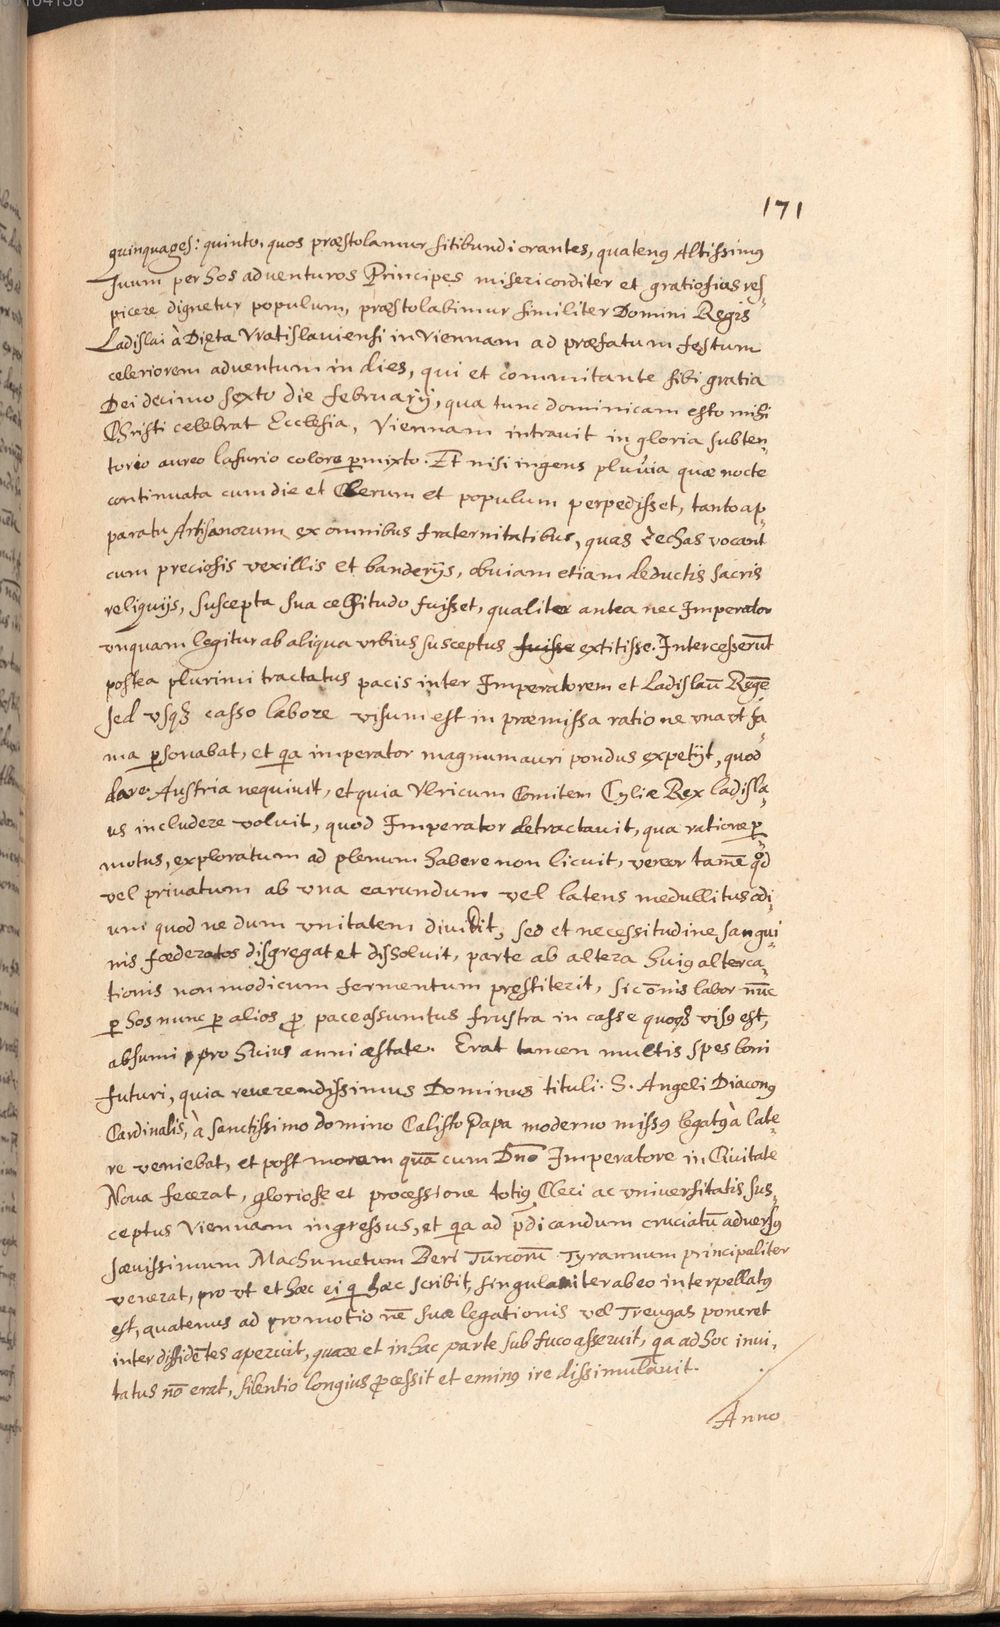 171
quinquages: quinto, quos præstolamur sitibundi orantes, quatenꝰ Altissimꝰ
suum per hos adventuros Principes misericorditer et gratiosius res-
picere dignetur populum, præstolabimur similiter Domini Regis
Ladislai à Dięta Vratislauiensi in Viennam ad præfatum festum
celeriorem aduentum in dies, qui et commitante sibi gratia
Dei decimo sexto die february, qua tunc dominicam esto mihi
Christi celebrat Ecclesia, Viennam intrauit in gloria sub ten-
torio aureo lasurio colore ꝑmixto. Et nisi ingens pluvia quæ nocte
continuata cum die et Clerum et populum perpedisset, tanto ap-
paratu Artisanorum ex omnibus fraternitatibus, quas Zechas vocant
cum preciosis vexillis et banderijs, obuiam etiam deductis sacris
reliquijs, suscepta sua celsitudo fuisset, qualiter antea nec Imperator
vnquam legitur ab aliqua vrbius susceptus fuisse extitisse. Intercesserūt
postea plurimi tractatus pacis inter Imperatorem et Ladislaū Regē
sed vsqꝫ casso labore visum est in præmissa ratione vna vt fa-
ma ꝑsonabat, et qa imperator magnum auri pondus expetijt, quod
dare Austria nequiuit, et quia Vlricum Comitem Cyliæ Rex ladisla-
us includere voluit, quod Imperator detractauit, qua ratione ꝑ
motus, exploratum ad plenum habere non licuit, vereor tamē qd
vel priuatum ab vna earundum vel latens medullitus odi-
um quod ne dum vnitatem diuidit, sed et necessitudine sangui-
nis fœderatos disgregat et dissoluit, parte ab altera huiꝰ alterca-
tionis non modicum fermentum pręstiterit, sic oīnis labor nūc
ꝑ hos nunc ꝑ alios ꝓ pace assumtus frustra in casse quoqꝫ visꝰ est,
absumi pro huius anni æstate. Erat tamen multis spes boni
futuri, quia reuerendissimus Dominus tituli. S. Angeli Diaconꝰ
Cardinalis, à sanctissimo domino Calisto Papa moderno missꝰ legatꝰ à late-
re veniebat, et post moram quā cum Dn̄o Imperatore in Ciuitate
Noua fecerat, gloriose et processione totiꝰ Cleri ac vniuersitatis sus-
ceptus Viennam ingressus, et qa ad p̄dicandum cruciatū aduersꝰ
sæuissimum Machumetum Berl Turcorū Tyrannum principaliter
venerat, pro vt et hæc ei q hæc scribit, singulariter ab eo interpellatꝰ
est, quatenus ad promotionē suæ legationis vel Treugas poneret
inter dissidētes aperuit, quare et in hac parte sub fuco asseruit, qa ad hoc inui-
tatus nō erat, silentio longius ꝓcessit et eminꝰ ire dissimulauit.
Anno